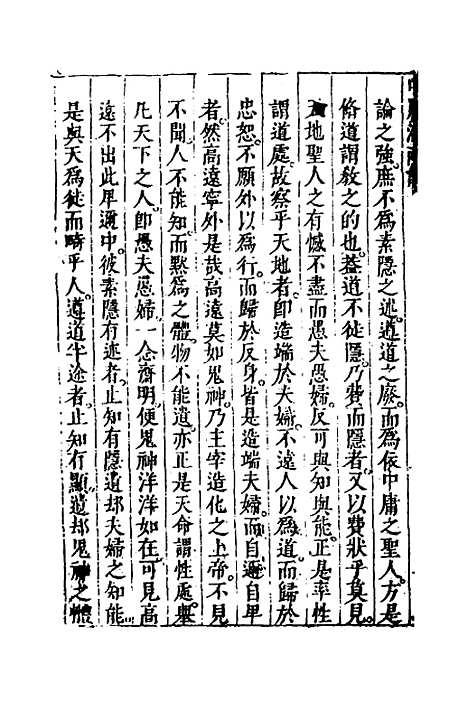 論之強庶不為素隱之述遵道之廢而為依中庸之聖人方是
脩道謂教之的也蓋道不徒隱乃費而隱者又以費狀乎莫見
地聖人之有憾不盡而愚夫愚婦反可與知與能正是率性
謂道處故察乎天地者即造端於夫婦不遠人以為道而歸於
忠恕不願外以為行而歸於反身皆是造端夫婦而自邇自卑
者然高遠寧外是哉高遠莫如鬼神乃主宰造化之上帝不見
不聞人不能知而默為之體物不能遺亦正是天命謂性處舉
凡天下之人即愚夫愚婦一念齊明便鬼神洋洋如在可見高
遠不出此卑邇中彼素隱有述者止知有隱遺却夫婦之知能
是與天為徒而畸乎人遵道半途者止知行顯遺却鬼神之體